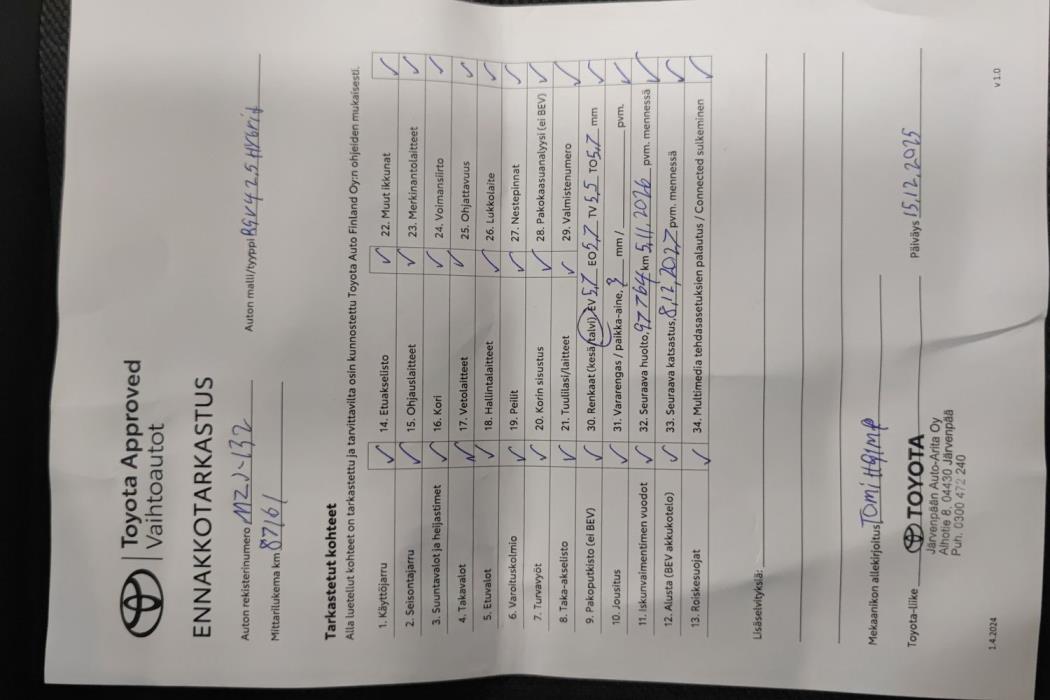 Toyota Approved
Vaihtoautot
ENNAKKOTARKASTUS
Auton rekisterinumero MZJ-132 Auton malli/tyyppi RAV4 2,5 Hybrid
Mittarilukema km 87161
Tarkastetut kohteet
Alla luetellut kohteet on tarkastettu ja tarvittavilta osin kunnostettu Toyota Auto Finland Oy:n ohjeiden mukaisesti.
1. Käyttöjarru ✓ 14. Etuakselisto ✓ 22. Muut ikkunat ✓
2. Seisontajarru ✓ 15. Ohjauslaitteet ✓ 23. Merkinantolaitteet ✓
3. Suuntavalot ja heijastimet ✓ 16. Kori ✓ 24. Voimansiirto ✓
4. Takavalot ✓ 17. Vetolaitteet ✓ 25. Ohjattavuus ✓
5. Etuvalot ✓ 18. Hallintalaitteet ✓ 26. Lukkolaite ✓
6. Varoituskolmio ✓ 19. Peilit ✓ 27. Nestepinnat ✓
7. Turvavyöt ✓ 20. Korin sisustus ✓ 28. Pakokaasuanalyysi (ei BEV) ✓
8. Taka-akselisto ✓ 21. Tuulilasi/laitteet ✓ 29. Valmistenumero ✓
9. Pakoputkisto (ei BEV) ✓ 30. Renkaat (kesä/talvi), EV 5,7 EO 5,7 TV 5,5 TO 5,7 mm ✓
10. Jousitus ✓ 31. Vararengas / paikka-aine, mm / pvm. ✓
11. Iskunvaimentimen vuodot ✓ 32. Seuraava huolto, 97764 km 5,11,2026 pvm. mennessä ✓
12. Alusta (BEV akkukotelo) ✓ 33. Seuraava katsastus, 8,12,2027 pvm. mennessä ✓
13. Roiskesuojat ✓ 34. Multimedia tehdasasetuksien palautus / Connected sulkeminen ✓
Lisäselvityksiä:
Mekaanikon allekirjoitus Tomi
Toyota-liike TOYOTA Päiväys 15,12,2025
Järvenpään Auto-Arita Oy
Alhotie 8, 04430 Järvenpää
Puh. 0300 472 240
1.4.2024 v 1.0